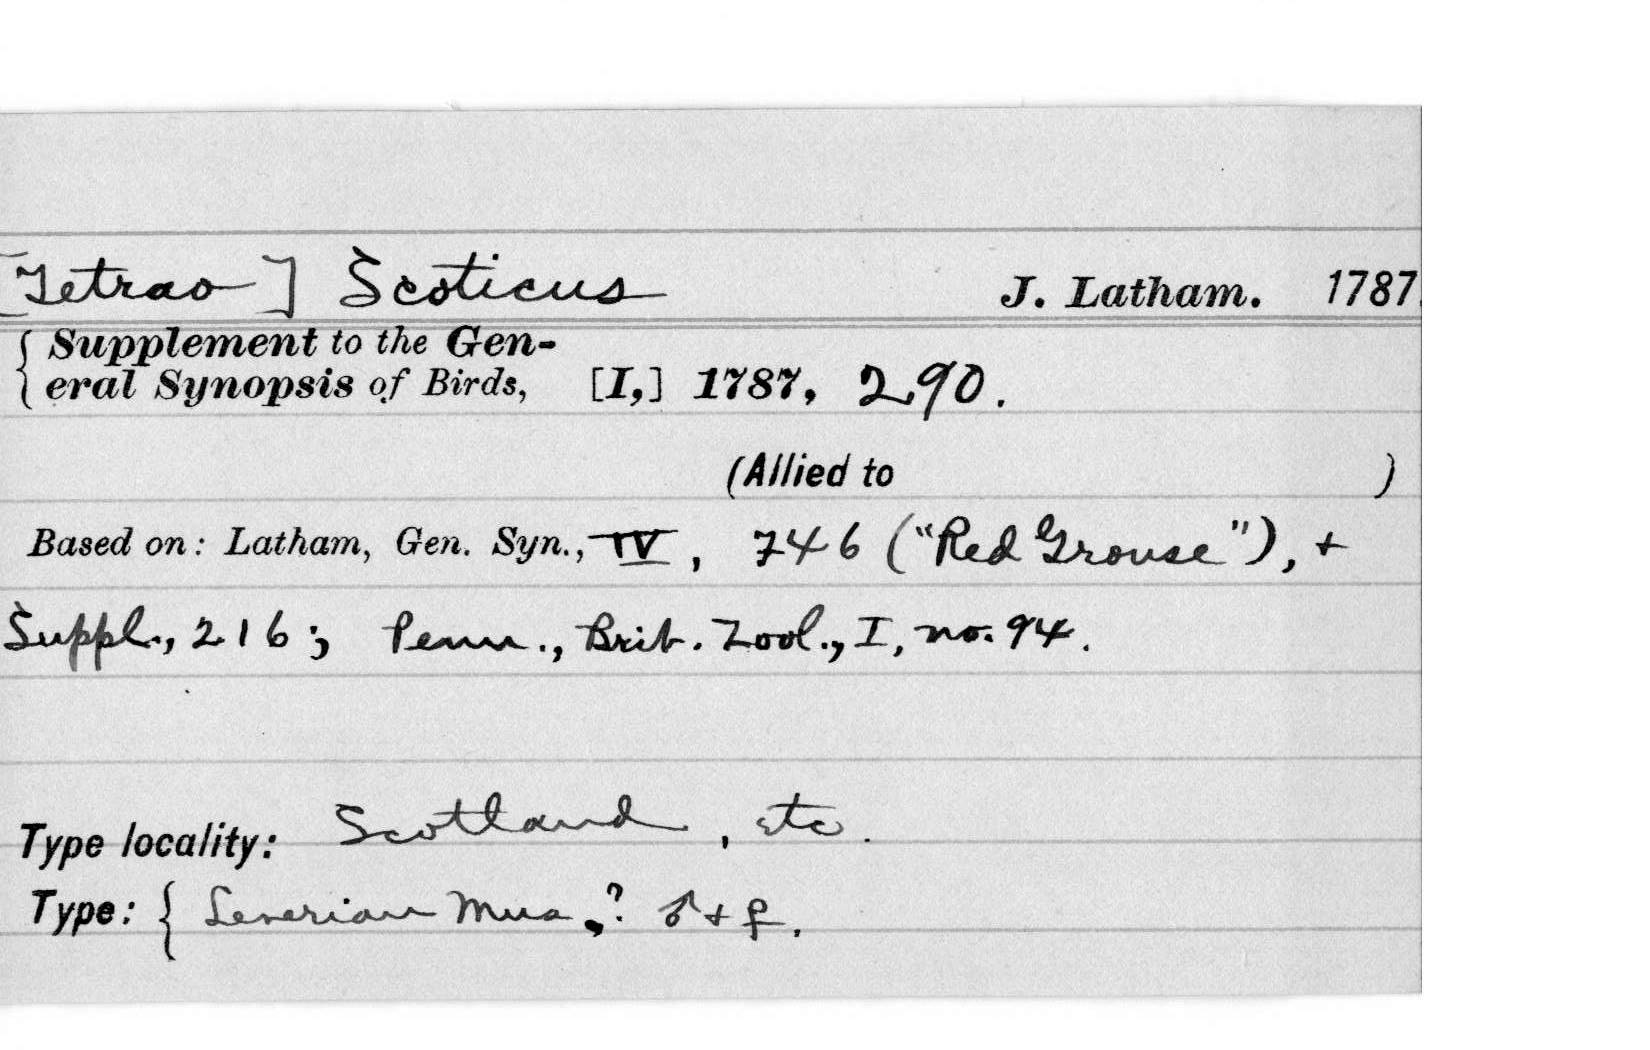 [Tetrao] Scoticus J. Latham. 1787.
{ Supplement to the Gen-
eral Synopsis of Birds, [I,] 1787, 290.
(Allied to )
Based on: Latham, Gen. Syn., IV, 746 ("Red Grouse"), +
Suppl., 216; Penn., Brit. Zool., I, no. 94.
Type locality: Scotland, etc.
Type: { Leverian Mus.,? ♂ + ♀.